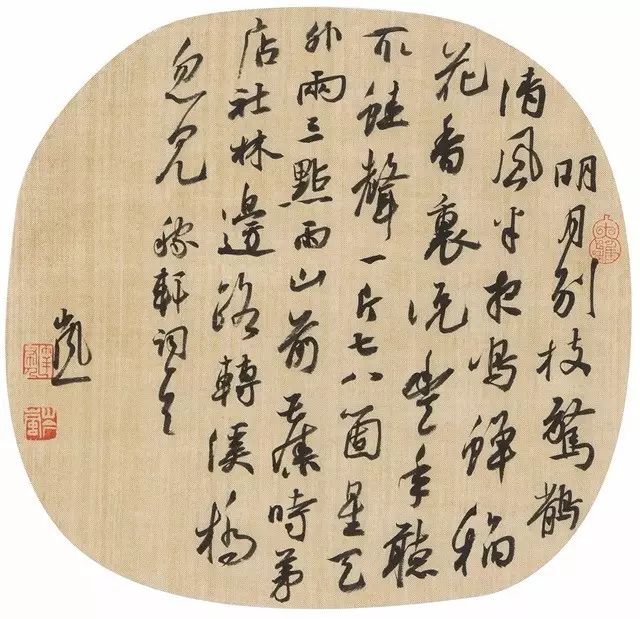 明月别枝驚鵲
清風半夜鳴蟬稻
花香裏說豐年聽
取蛙聲一片七八箇星天
外兩三點雨山前舊時茅
店社林邊路轉溪橋
忽見 稼軒詞